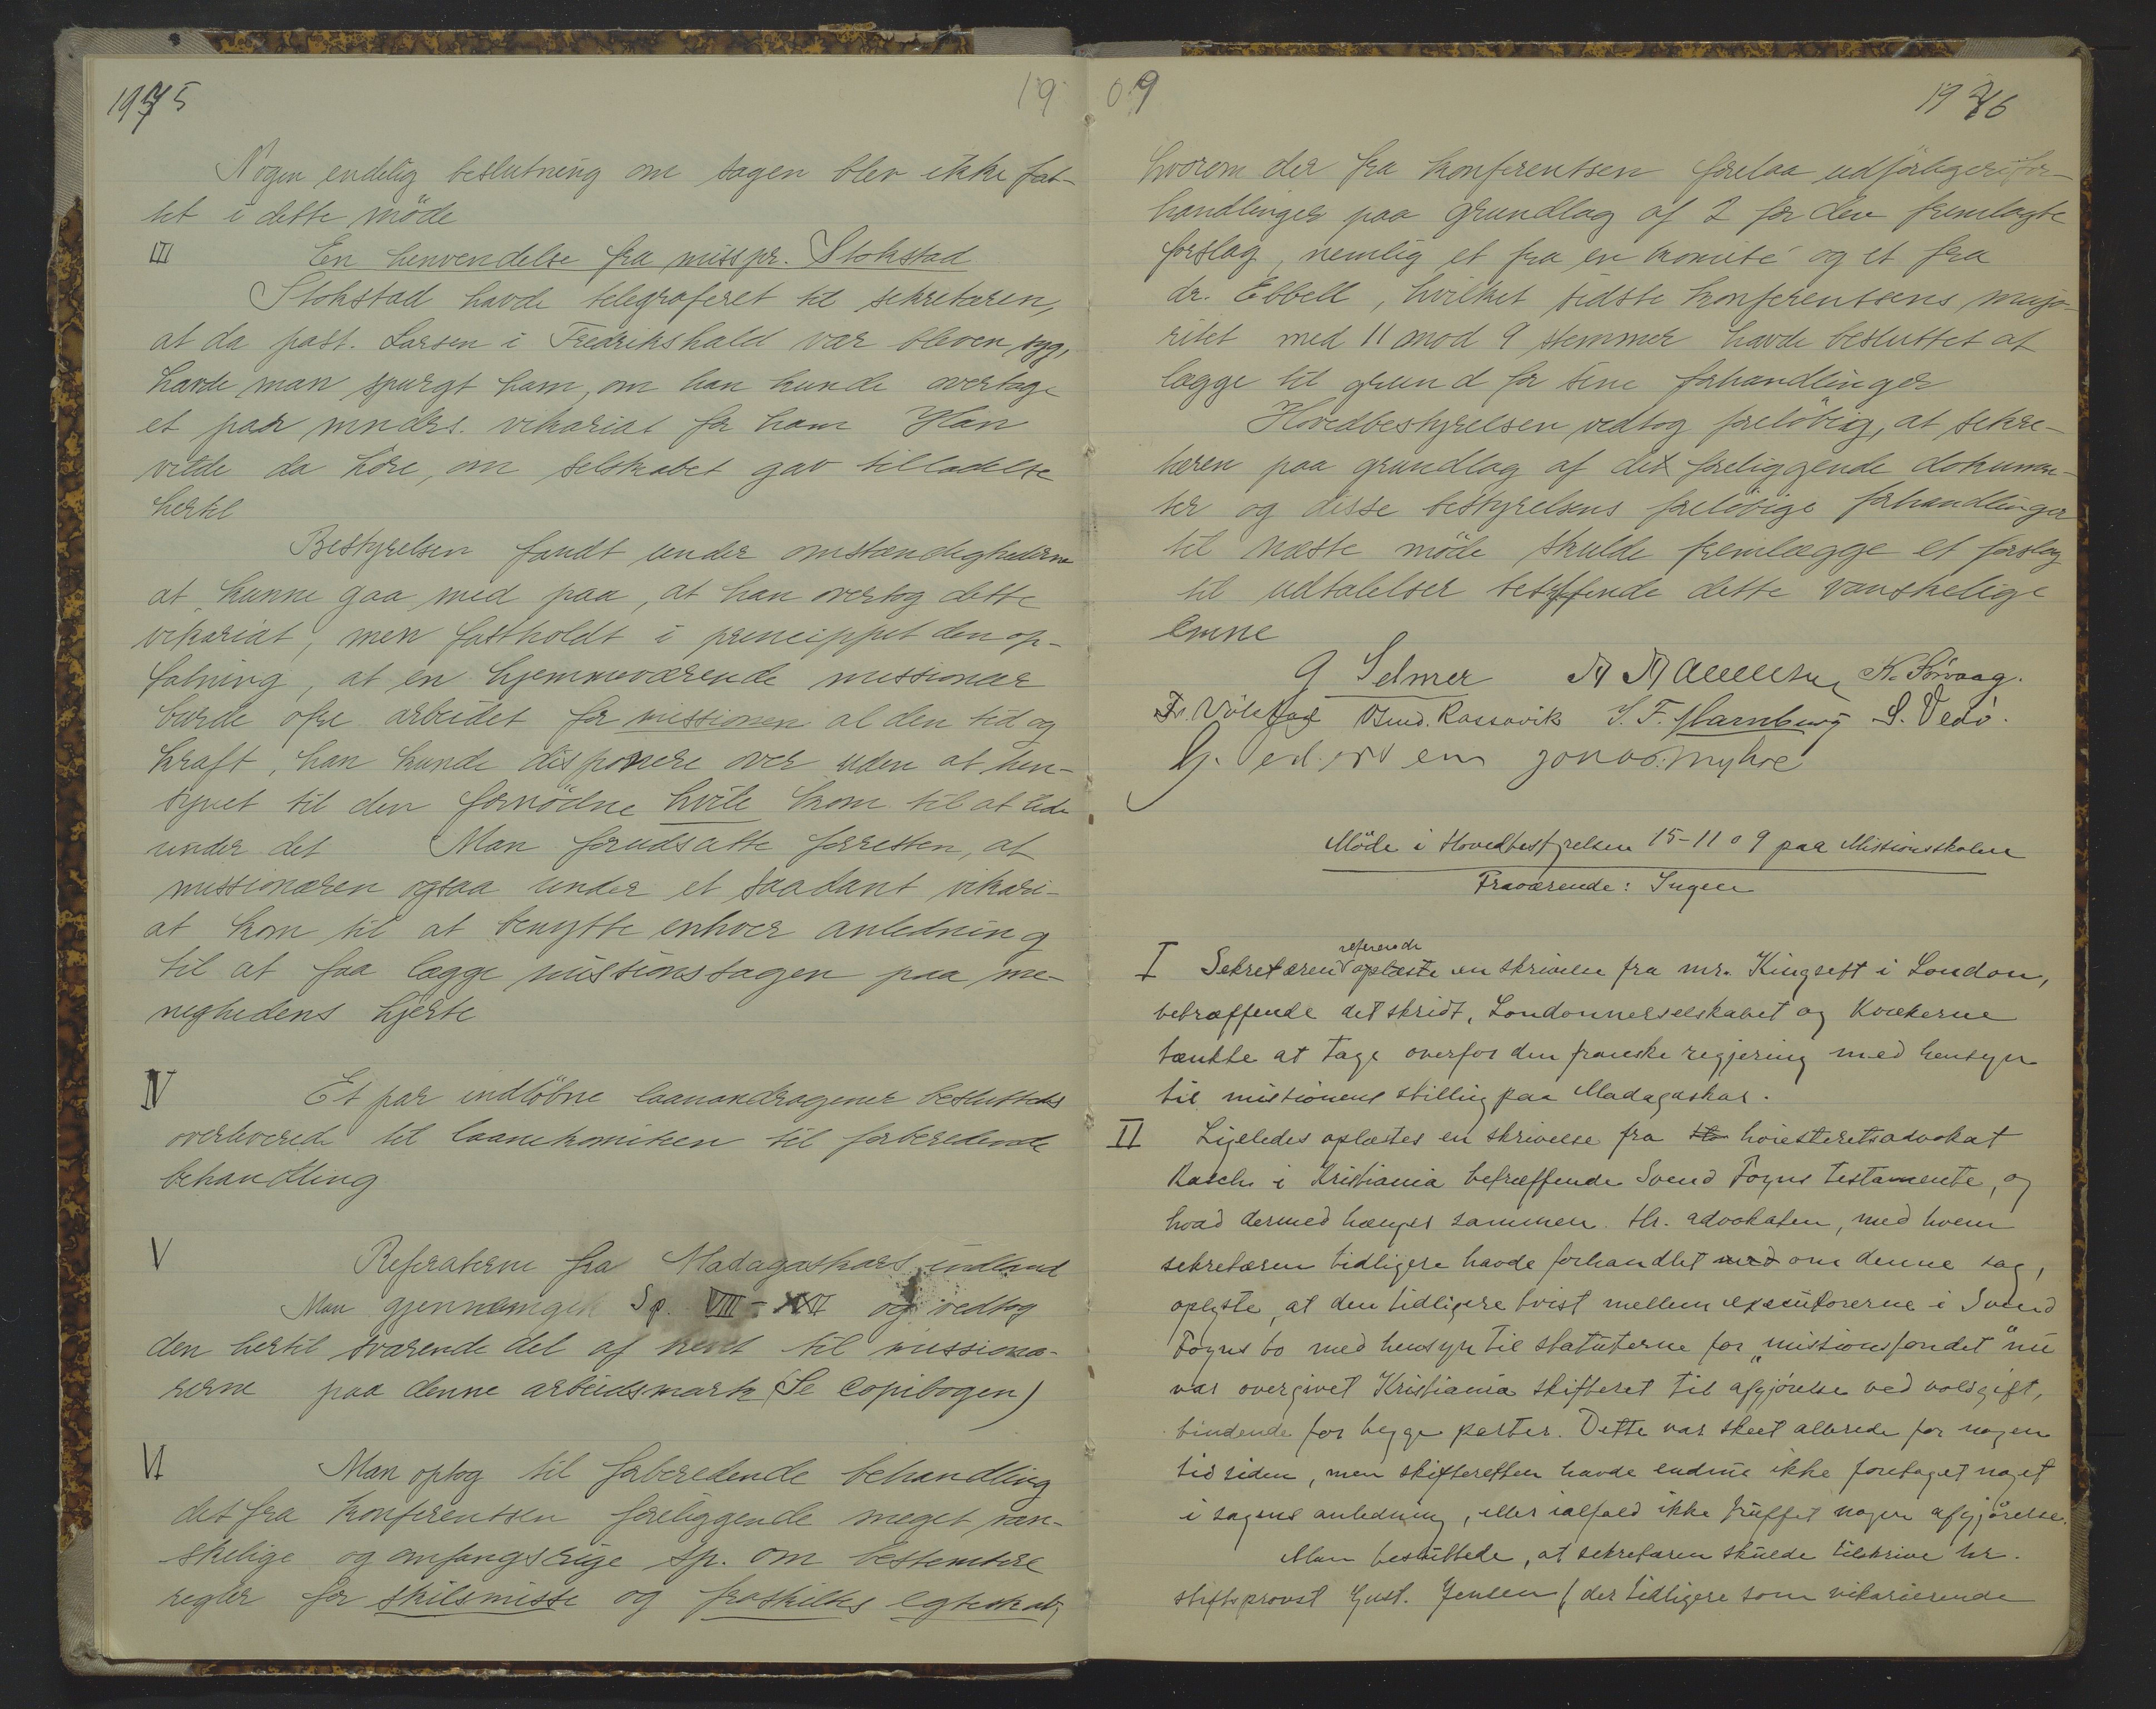 1975
19
Nogen endelig beslutning om sagen blev ikke fat-
tet i dette möde
III En henvendelse fra misspr. Stokstad
Stokstad havde telegraferet til sekretæren,
at da past. Larsen i Fredrikshald var bleven syg,
havde man spurgt ham, om han kunde overtage
et par mndrs. vikariat for ham Han
vilde da höre, om selskabet gav tilladelse
hertil
Bestyrelsen fandt under omstændighederne
at kunne gaa med paa, at han overtog dette
vikariat, men fastholdt i princippet den op-
fatning, at en hjemmeværende missionær
burde ofre arbeidet for missionen al den tid og
kraft, han kunde disponere over uden at hen-
synet til den fornödne hvile kom til at lide
under det Man forudsatte forresten, at
missionæren ogsaa under et saadant vikari-
at kom til at benytte enhver anledning
til at faa lægge missionssagen paa me-
nighedens hjerte
IV Et par indlöbne laanandragener besluttedes
overleverede til laanekomiteen til forberedende
behandling
V Referaterne fra Madagaskars indland
Man gjennemgik Sp. VIII - XII og vedtog
den hertil svarende del af brevet til missionæ-
rerne paa denne arbeidsmark (Se Copibogen)
VI Man optog til forberedende behandling
det fra konferentsen foreliggende meget van-
skelige og omfangsrige sp. om bestemtere
regler for skilsmisse og fraskiltes egteskab,
09
1976
hvorom der fra konferentsen forelaa udförligere for-
handlinger paa grundlag af 2 for den fremlagte
forslag, nemlig et fra en komité og et fra
dr. Ebbell, hvilket sidste konferentsens majo-
ritet med 11 mod 9 stemmer havde besluttet at
lægge til grund for sine forhandlinger
Hovedbestyrelsen vedtog forelöbig, at sekre-
tæren paa grundlag af de foreliggende dokumen-
ter og disse bestyrelsens forelöbige forhandlinger
til næste möde skulde fremlægge et forslag
til udtalelser betræffende dette vanskelige
emne
G Selmer K. Förvaag.
Rossavik J. F. Hamburg S. Vedö.
Jonas Myhre
Möde i Hovedbestyrelsen 15-11 09 paa Missionsskolen
Fraværende: Ingen
I Sekretæren oplæste en skrivelse fra mr. Kingseft i London,
refererede
betræffende det skridt, Londonnerselskabet og Kvækerne
tænkte at tage overfor den franske regjering med hensyn
til missionens stilling paa Madagaskar.
II Ligeledes oplæstes en skrivelse fra høiesteretsadvokat
i Kristiania betræffende Svend Foyns testamente, og
hvad dermed hænger sammen. Hr. advokaten, med hvem
sekretæren tidligere havde forhandlet med om denne sag,
oplyste, at den tidligere tvist mellem executorerne i Svend
Foyns bo med hensyn til statuterne for „missionsfondet" nu
var overgivet Kristiania skifteret til afgjörelse ved voldgift,
bindende for begge parter. Dette var skeet allerede for nogen
tid siden, men skifteretten havde endnu ikke foretaget noget
i sagens anledning, eller ialfald ikke truffet nogen afgjörelse.
Man besluttede, at sekretæren skulde tilskrive hr.
stiftsprovst Gust. Jensen (der tidligere som vikarierende